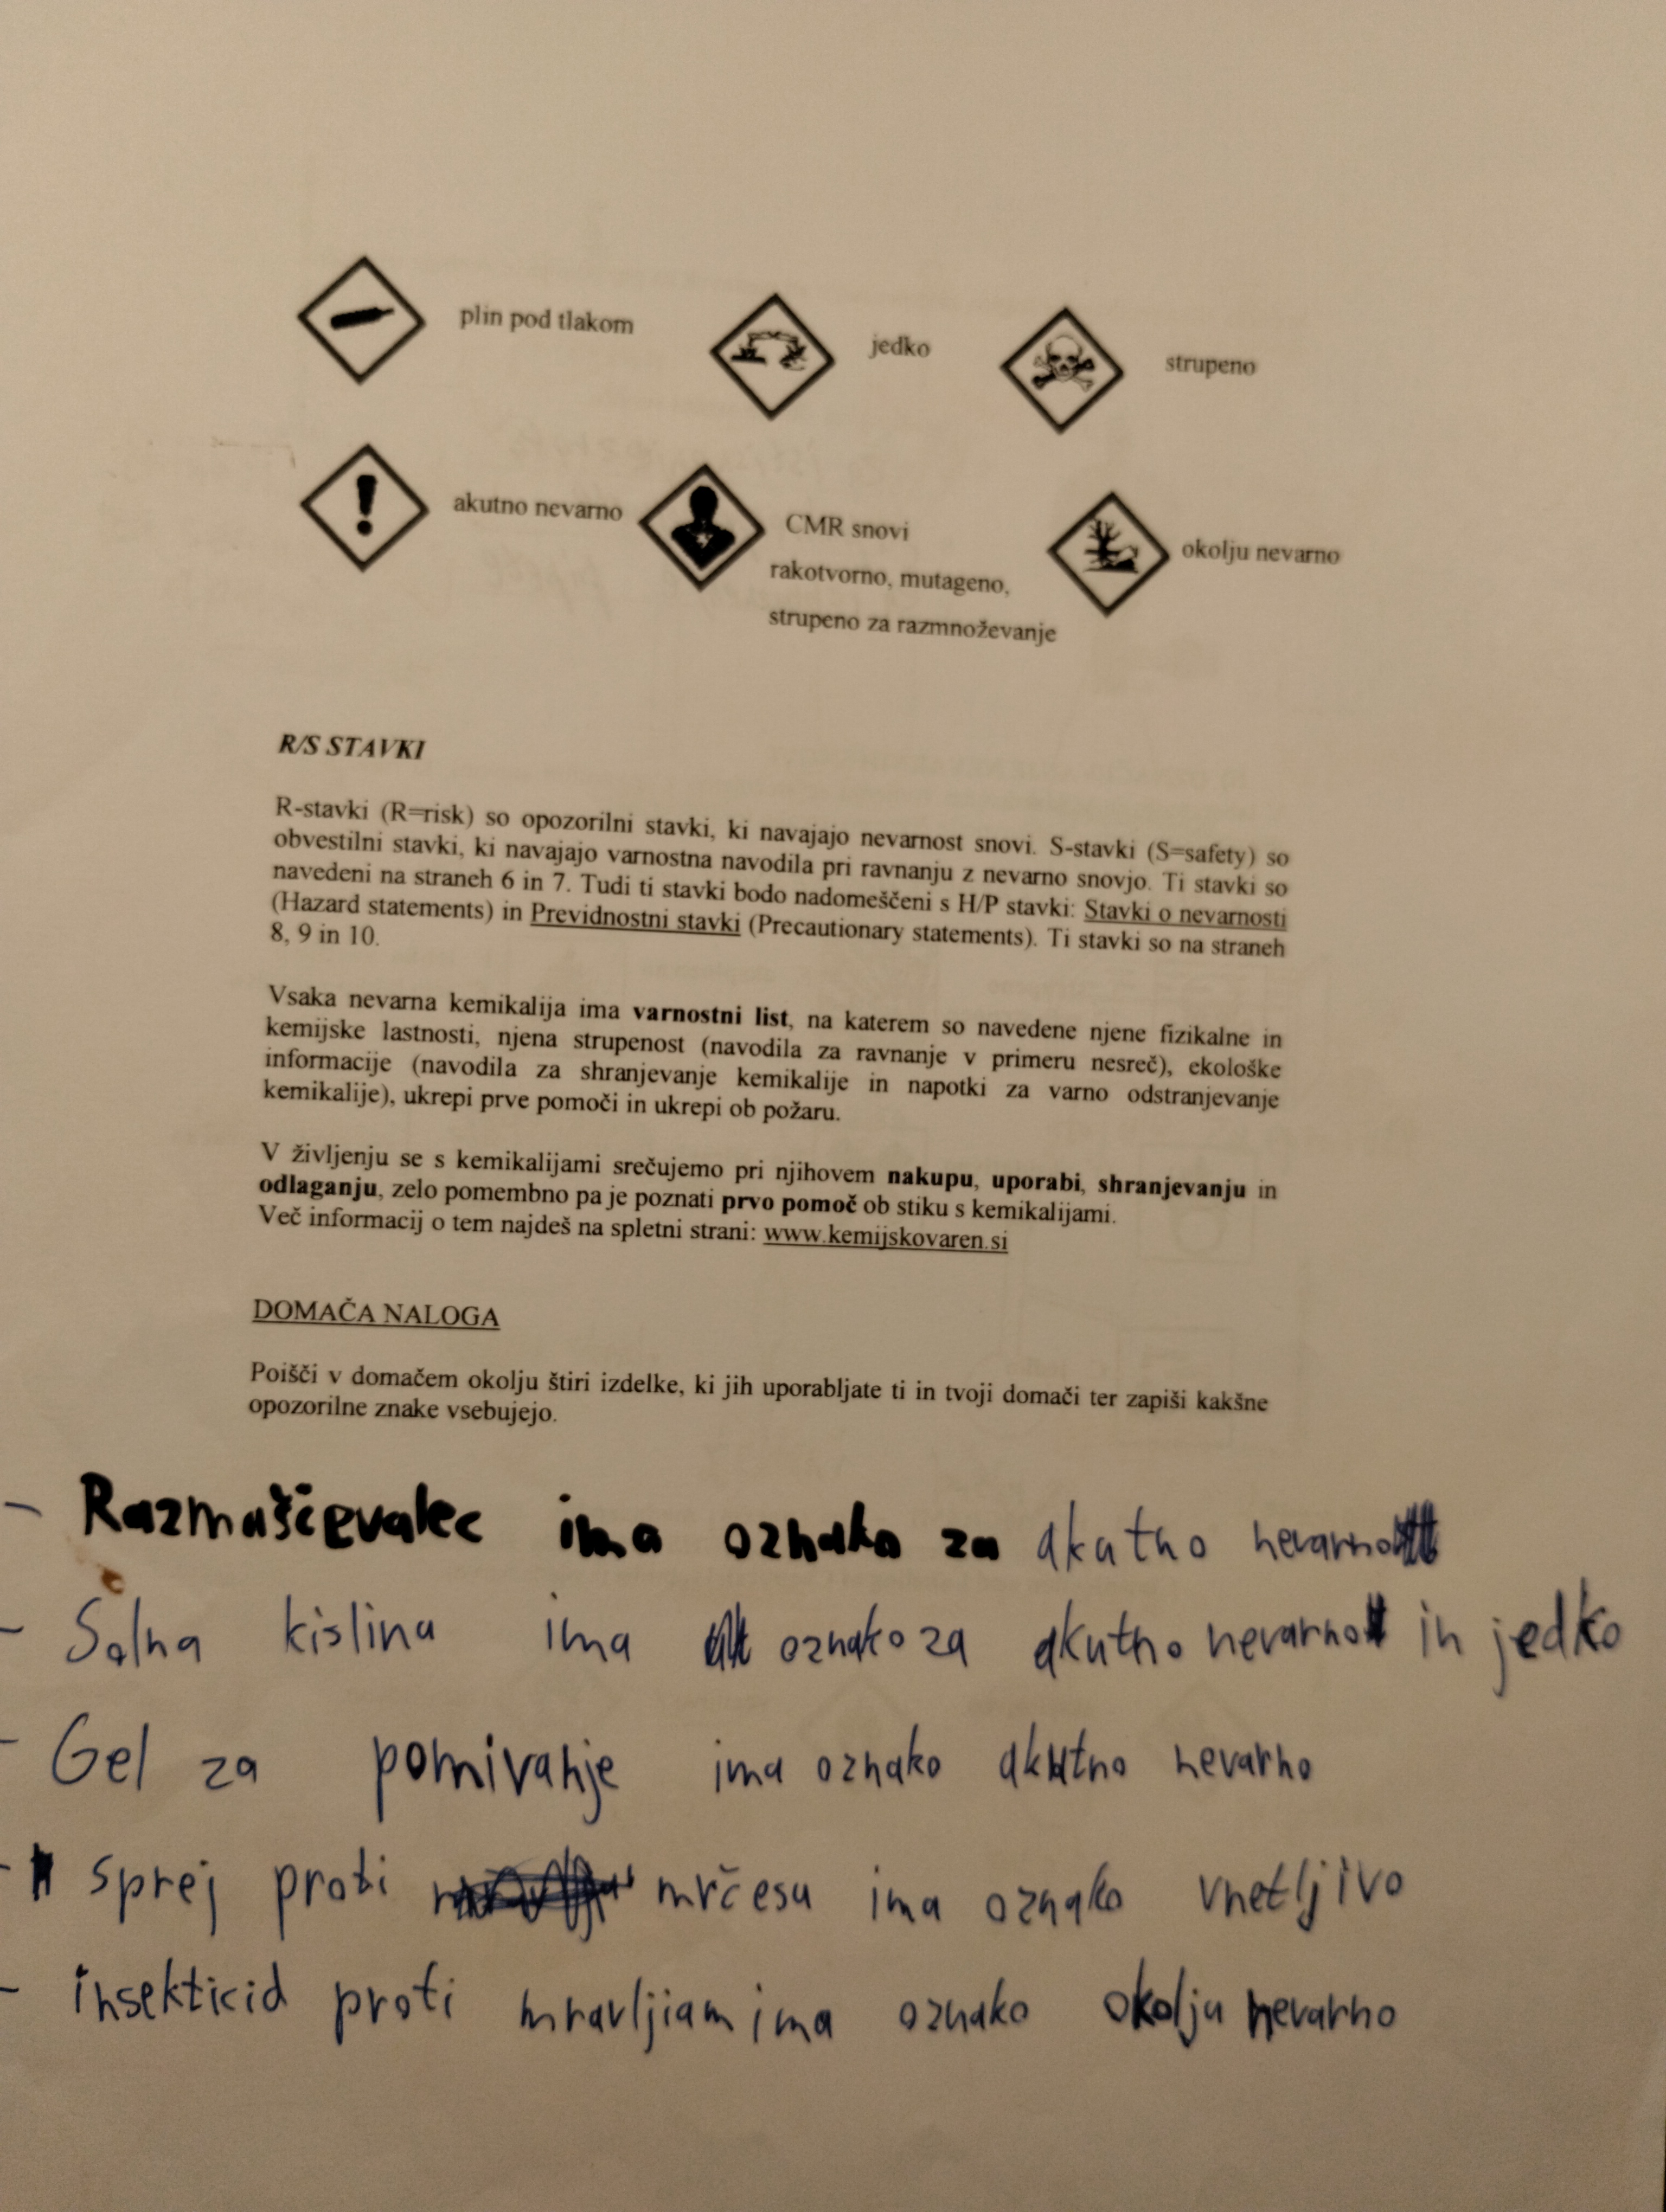 plin pod tlakom
jedko
strupeno
akutno nevarno
CMR snovi
rakotvorno, mutageno,
strupeno za razmnoževanje
okolju nevarno
R/S STAVKI
R-stavki (R=risk) so opozorilni stavki, ki navajajo nevarnost snovi. S-stavki (S=safety) so
obvestilni stavki, ki navajajo varnostna navodila pri ravnanju z nevarno snovjo. Ti stavki so
navedeni na straneh 6 in 7. Tudi ti stavki bodo nadomeščeni s H/P stavki: Stavki o nevarnosti
(Hazard statements) in Previdnostni stavki (Precautionary statements). Ti stavki so na straneh
8, 9 in 10.
Vsaka nevarna kemikalija ima varnostni list, na katerem so navedene njene fizikalne in
kemijske lastnosti, njena strupenost (navodila za ravnanje v primeru nesreč), ekološke
informacije (navodila za shranjevanje kemikalije in napotki za varno odstranjevanje
kemikalije), ukrepi prve pomoči in ukrepi ob požaru.
V življenju se s kemikalijami srečujemo pri njihovem nakupu, uporabi, shranjevanju in
odlaganju, zelo pomembno pa je poznati prvo pomoč ob stiku s kemikalijami.
Več informacij o tem najdeš na spletni strani: www.kemijskovaren.si
DOMAČA NALOGA
Poišči v domačem okolju štiri izdelke, ki jih uporabljate ti in tvoji domači ter zapiši kakšne
opozorilne znake vsebujejo.
- Razmaščevalec ima oznako za akutno nevarno
- Solna kislina ima oznako za akutno nevarno in jedko
- Gel za pomivanje ima oznako akutno nevarno
- sprej proti mrčesu ima oznako vnetljivo
- insekticid proti mravljiam ima oznako okolju nevarno